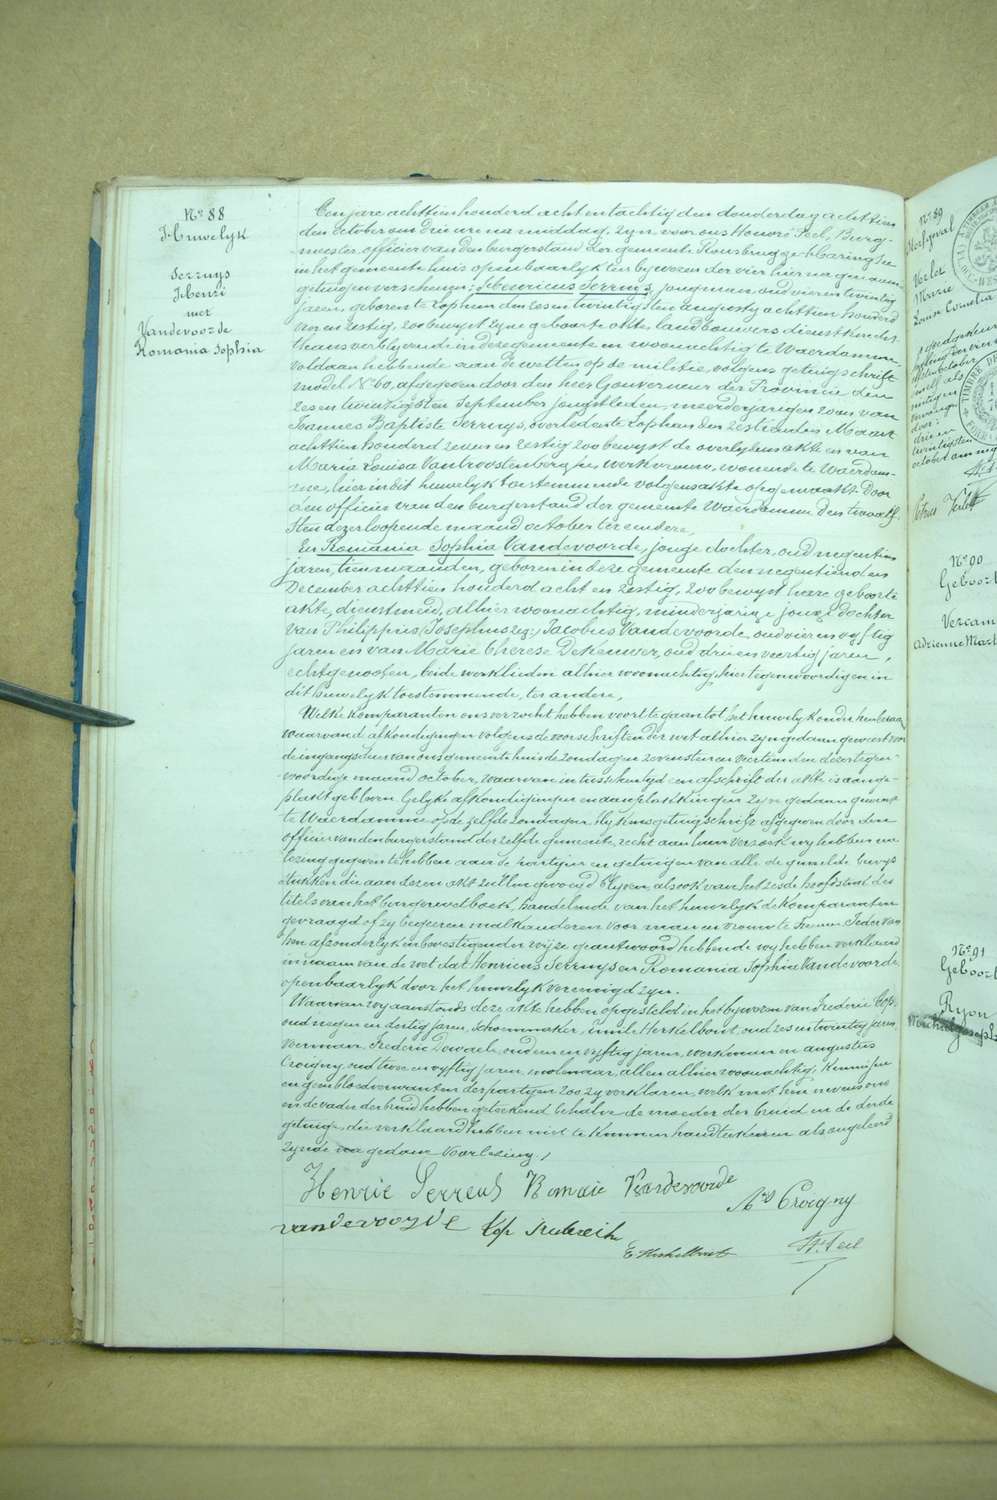 Nr 88
Huwelyk
Serruys
Henri
met
Vandevoorde
Romania Sophia
Een jare achttien honderd acht en tachtig den donderdag achttien
den October om drie ure na middag, zyn voor ons Honoré Feel, Burg-
meester officier van den burgerstand der gemeente Rousbrugge-Haringhe
in het gemeente huis openbaarlyk ten bywezen der vier hier na genaamde
getuigen verschenen: Henricus Serruys, jongman, oud vier en twintig
jaren, geboren te Lophem den zes en twintigsten augusty achttien honderd
vier en zestig, zoo bewyst zyne geboorte akte, landbouwers dienstknecht
thans verblyvende in deze gemeente en woonachtig te Waerdamme,
voldaan hebbende aan de wetten op de militie, volgens getuigschrift
model N. 60, afgegeven door den heer Gouverneur der Provincie den
zes en twintigsten September jongstleden, meerderjarigen zoon van
Joannes Baptiste Serruys, overleden te Lophem den zesden Maart
achttien honderd zeven en zestig zoo bewyst de overlydens akte en van
Maria Louisa Vantroostenberghe, werkvrouw, wonende te Waerdam-
me, hier in dit huwelyk toestemmende volgens akte opgemaakt door
den officier van den burgerstand der gemeente Waerdamme den twaalf-
sten dezer loopende maand october ter eendere,
En Romania Sophia Vandevoorde, jonge dochter, oud negentien
jaren, tien maanden, geboren in deze gemeente den negentienden
December achttien honderd acht en zestig, zoo bewyst hare geboorte
akte, dienstmeid, alhier woonachtig, minderjarige jonge dochter
van Philippus Josephus zeg: Jacobus Vandevoorde oud vier en vyftig
jaren en van Marie Therese Dekeuwer, oud drie en veertig jaren,
echtgenooten, beide werklieden alhier woonachtig, hier tegenwoordig en in
dit huwelyk toestemmende, ter andere,
Welke komparanten ons verzocht hebben voort te gaan tot het huwelyk onder hen beraamd
waarvan de afkondigingen volgens de voorschriften der wet alhier zyn gedaan geweest voor
de ingangsdeur van ons gemeente huis de zondagen zevensten en veertienden dezer tegen-
woordige maand October, waarvan intusschentyd een afschrift der akte is aange-
plakt gebleven. Gelyke afkondigingen en aanplakkingen zyn gedaan geweest
te Waerdamme op de zelfde zondagen. blykens getuigschrift afgegeven door den
officier van den burgerstand der zelfde gemeente, recht aan hun verzoek wy hebben na
lezing gegeven te hebben aan de partyen en getuigen van alle de gemelde bewys
stukken die aan dezen akt zullen gevoegd blyven, als ook van het zesde hoofdstuk des
titels van het burgerwetboek, handelende van het huwelyk de komparanten
gevraagd of zy begeeren malkanderen voor man en vrouw te nemen. Ieder van
hen afzonderlyk in bevestigender wyze geantwoord hebbende wy hebben verklaard
in naam van de wet dat Henricus Serruys en Romania Sophia Vandevoorde
openbaarlyk door het huwelyk vereenigd zyn.
Waarvan wy aanstonds deze akte hebben opgesteld in het bywezen van Frederic Cop,
oud negen en dertig jaren, schoenmaker, Emile Herkelbout, oud zes en twintig jaren,
veerman, Frederic Dewaele, oud een en vyftig jaren, werkman en augustus
Croigny, oud twee en vyftig jaren, molenaar, allen alhier woonachtig, kennissen
en geen bloedverwanten der partyen zoo zy verklaren, welke met hem nevens ons
en de vader der bruid hebben geteekend behalve de moeder der bruid en de derde
getuige, die verklaard hebben niet te kunnen handteekenen als ongeleerd
zynde na gedane voorlezing,
Henrie Serreus Romaie Vandevoorde
Ats Croigny
vandevoorde Kop frederich
E Herkelbout
H. Feel
Nr 89
Verlet
Marie
Louise Cornelia
Nr 90
Geboort
Adrienne
Nr 91
Geboort
Ryon